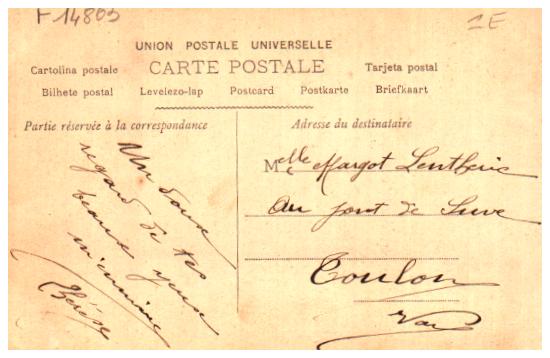 F 14803
2E
UNION POSTALE UNIVERSELLE
CARTE POSTALE
Cartolina postale
Tarjeta postal
Bilhete postal Levelezo-lap Postcard Postkarte Briefkaart
Partie réservée à la correspondance
Un doux
regard de tes
beaux yeux
Adresse du destinataire
Mlle Margot Lentheric
au pont de Suve
Toulon
Var